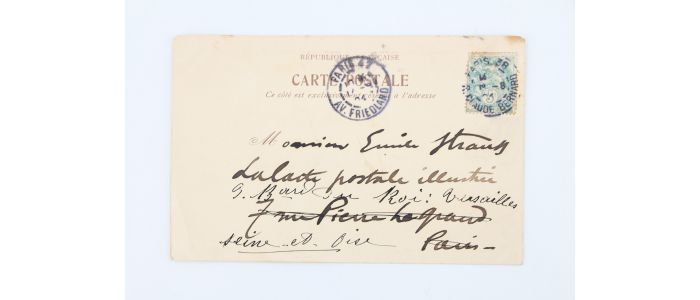 RÉPUBLIQUE FRANÇAISE
CARTE POSTALE
Ce côté est exclusivement réservé à l'adresse
PARIS 47
AV. FRIEDLAND
PARIS 38
R. CLAUDE BERNARD
Monsieur Emile Strauss
La Carte postale illustrée
9. du Roi: Versailles
7 rue Pierre le grand
seine et Oise
Paris